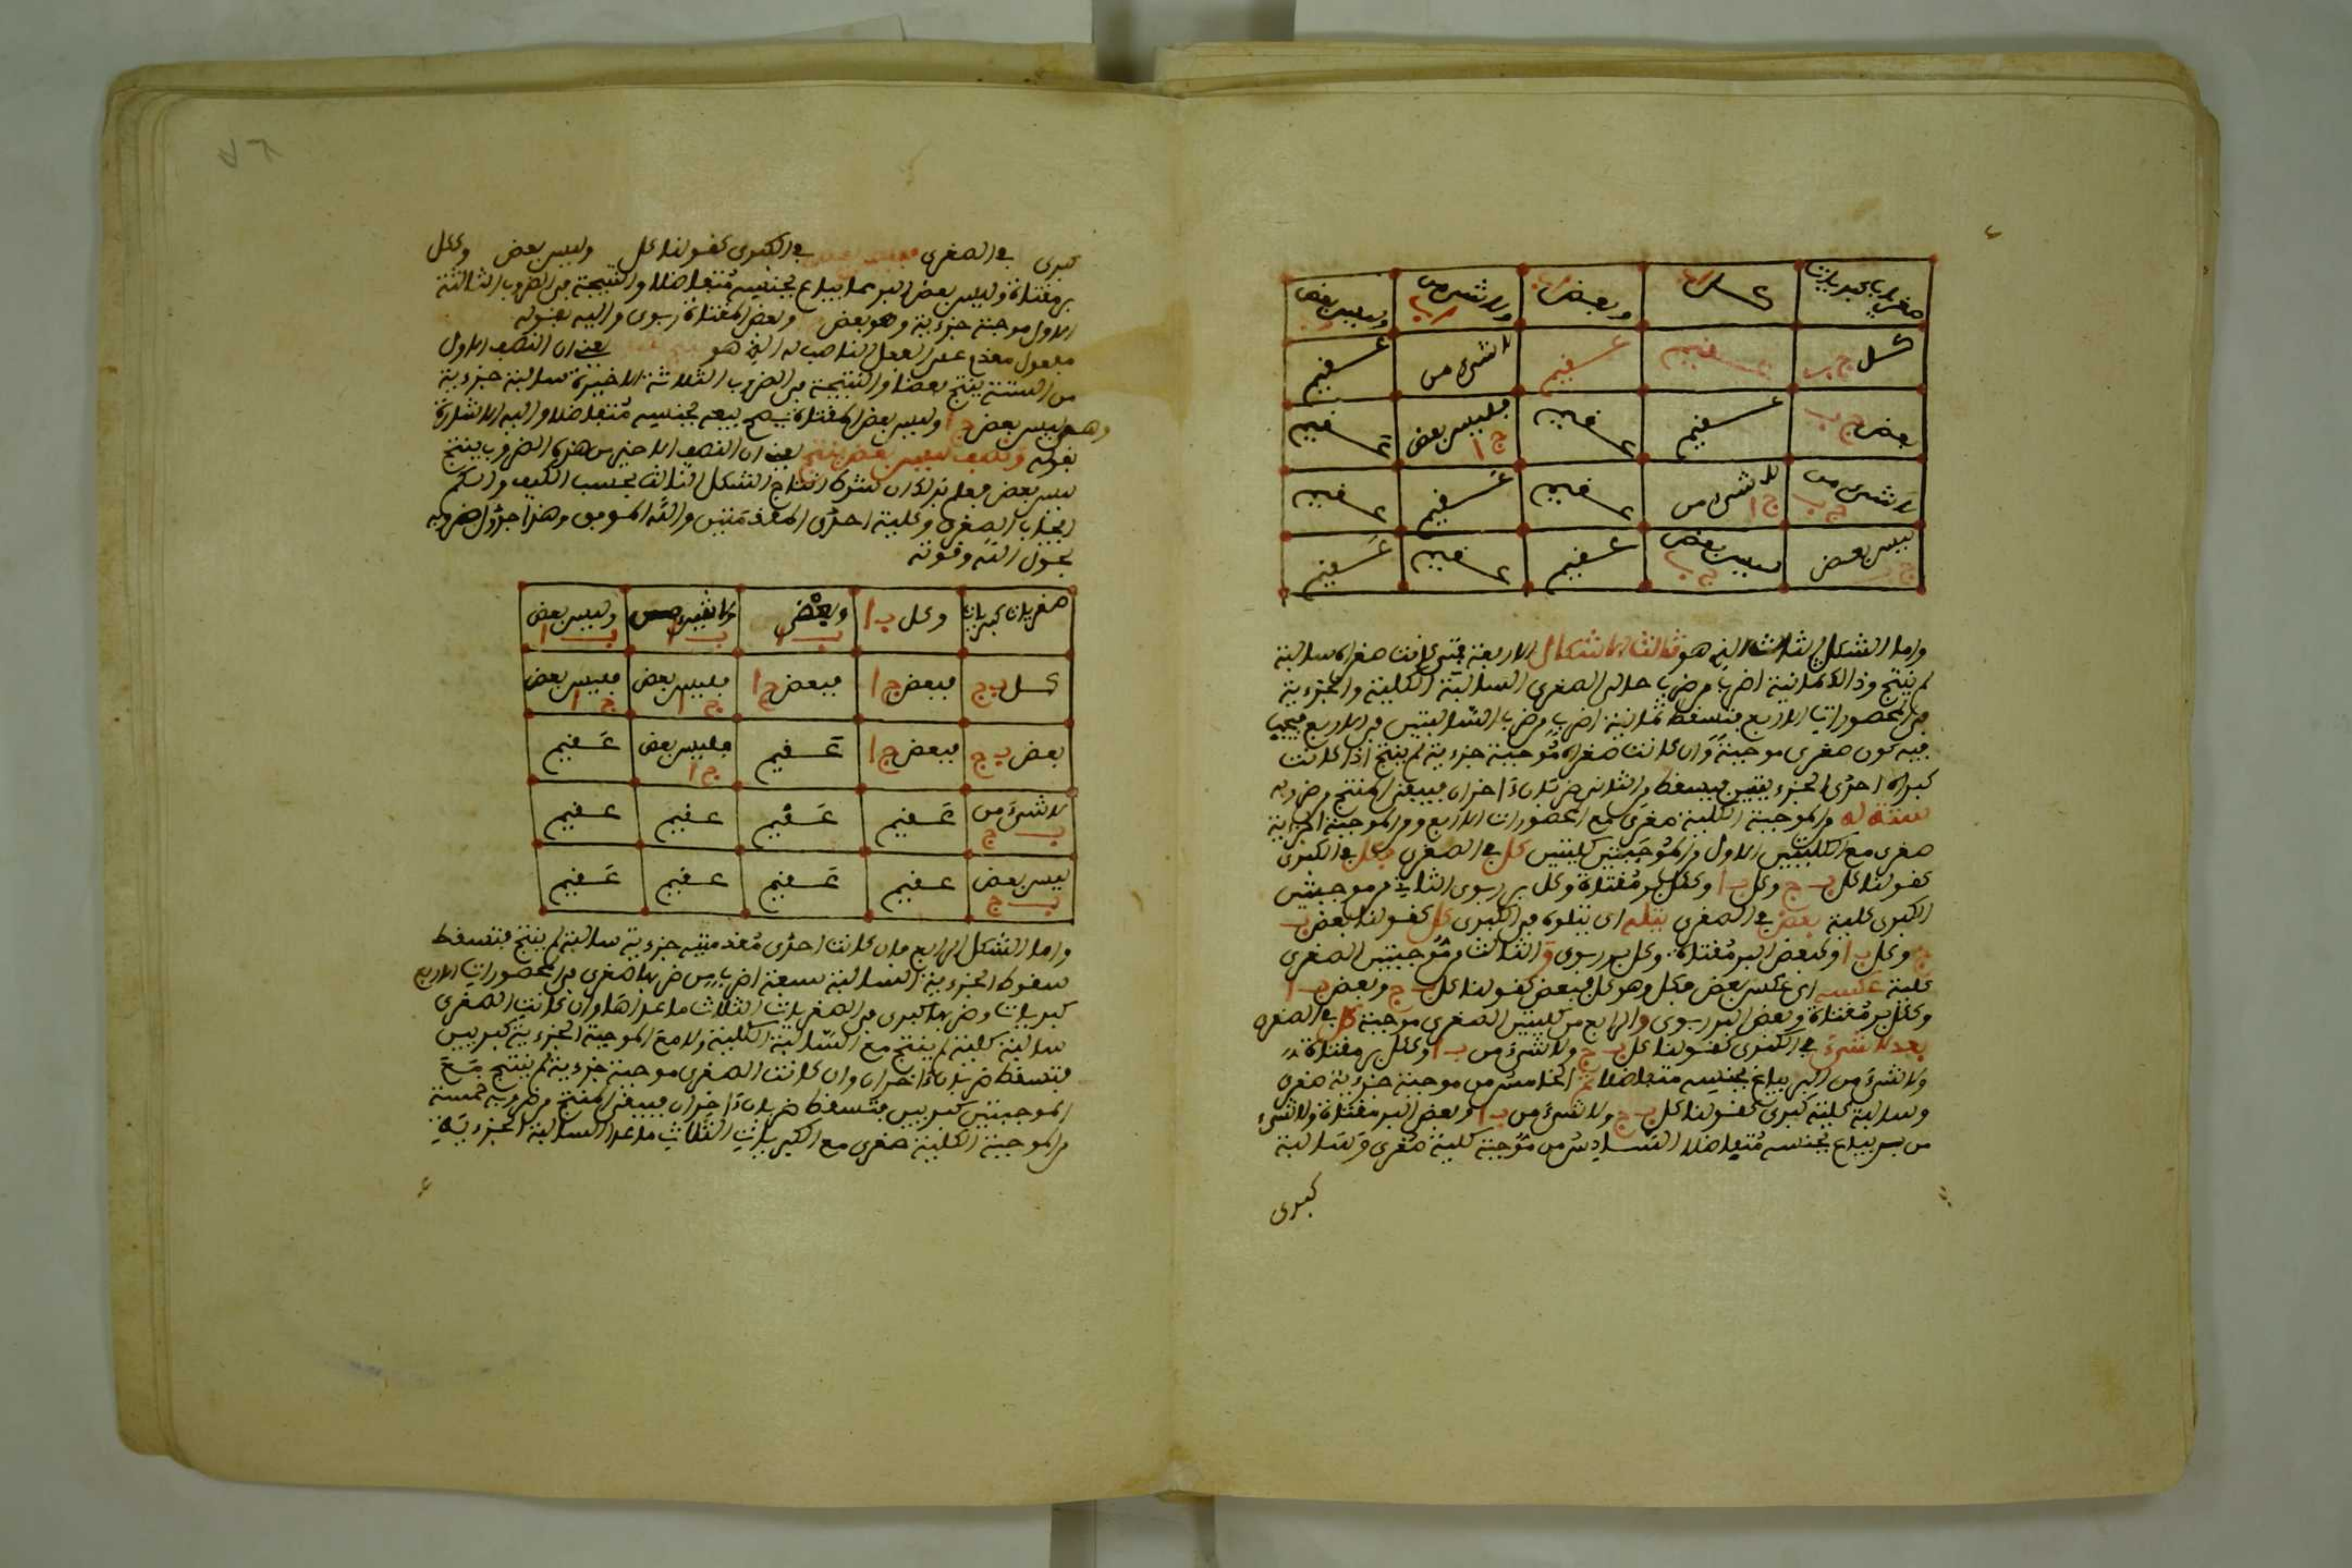 صغريات كبريات كل وبعض ولا شيء من وليس بعض
كل ج ب عقيم عقيم لا شيء من عقيم
بعض ج ب عقيم عقيم فليس بعض ج ا عقيم
لا شيء من ج ب لا شيء من ج ا عقيم عقيم عقيم
ليس بعض ليس بعض عقيم عقيم عقيم
واما الشكل الثالث الذي هو ثالث الاشكال الاربعة فمتى كانت صغراه سالبة
لم ينتج وذالك ثمانية اضرب من ضرب السالبة الكلية والجزءية
في المحصورات الاربع فتسقط ثمانية اضرب من ضرب السالبتين في الاربع فيجب
فيه كون صغرى موجبة وان كانت صغراه موجبة جزءية لم ينتج اذا كانت
كبراه احدى الجزءيتين فيسقط ضربان اخران فيبقى المنتج من ضروبه
ستة له من الموجبة الكلية صغرى مع المحصورات الاربع ومن الموجبة الجزءية
صغرى مع الكليتين الاول من الموجبتين كليتين كل في الصغرى فكل في الكبرى
كقولنا كل ب ج وكل ب ا وككل بر مقتات وكل بر ربوي الثاني من موجبتين
الكبرى كلية بعض في الصغرى يتلوه في الكبرى كل كقولنا بعض ب
ج وكل ب ا وكبعض البر مقتات وكل بر ربوي والثالث من موجبتين الصغرى
كلية عكسه اي عكس بعض فكل وهو كل فبعض كقولنا كل ب ج وبعض ب ا
وككل بر مقتات وبعض البر ربوي والرابع من كليتين الصغرى موجبة كل في الصغرى
بعد لا شيء في الكبرى كقولنا كل ب ج ولا شيء من ب ا وككل بر مقتات
ولا شيء من البر يباع بجنسه متفاضلا الخامس من موجبة جزءية صغرى
وسالبة كلية كبرى كقولنا كل ب ج ولا شيء من ب ا وبعض البر مقتات ولا شيء
من بر يباع بجنسه متفاضلا السادس من موجبة كلية صغرى وسالبة
كبرى
كبرى في الصغرى فليس بعض في الكبرى كقولنا كل وليس بعض وككل
بر مقتات وليس بعض البر يباع بجنسه متفاضلا والنتيجة في الضروب الثالثة
الاول موجبة جزءية وهو بعض وبعض المقتات ربوي واليه بقوله
مفعول مقدم على الفعل الناصب له الذي هو يعني ان النصف الاول
من الستة ينتج بعضا والنتيجة في الضروب الثلاثة الاخيرة سالبة جزءية
وهي ليس بعض ج ا وليس بعض المقتات يصح بيعه بجنسه متفاضلا واليه الاشارة
بقوله ونصف ليس بعض ينتج يعني ان النصف الاخير من هذه الضروب ينتج
ليس بعض فعلم بذلك ان شرط انتاج الشكل الثالث بحسب الكيف والكم
ايجاب الصغرى وكلية احدى المقدمتين والله الموفق وهذا جدول ضروبه
بحول الله وقوته
صغريات كبريات وكل ب ا وبعض ب ا ولا شيء من ب ا وليس بعض ب ا
كل ب ج فبعض ج ا فبعض ج ا فليس بعض ج ا فليس بعض ج ا
بعض ب ج فبعض ج ا عقيم فليس بعض ج ا عقيم
لا شيء من ب ج عقيم عقيم عقيم عقيم
ليس بعض ب ج عقيم عقيم عقيم عقيم
واما الشكل الرابع فان كانت احدى مقدمتيه جزءية سالبة لم ينتج فتسقط
سقوط الجزءية السالبة سبعة اضرب من ضربها صغرى في المحصورات الاربع
كبريات وضربها كبرى في الصغريات الثلاث ما عداها وان كانت الصغرى
سالبة كلية لم ينتج مع السالبة الكلية ولا مع الموجبة الجزءية كبريين
فتسقط ضربان اخران وان كانت الصغرى موجبة جزءية لم ينتج مع
الموجبتين كبريين فتسقط ضربان اخران فيبقى المنتج من ضروبه خمسة
من الموجبة الكلية صغرى مع الكبريات الثلاث ما عدا السالبة الجزءية